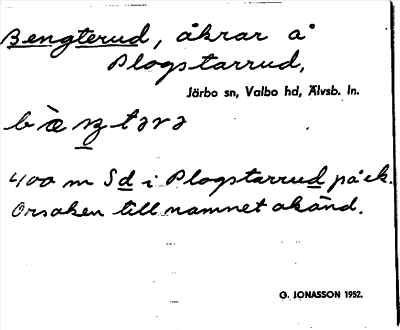 Bengterud, åkrar å
Plogstarrud,
Järbo sn, Valbo hd, Älvsb. ln.
bæŋtərə
400 m Sd i Plogstarrud på ek.
Orsaken till namnet okänd.
G. JONASSON 1952.